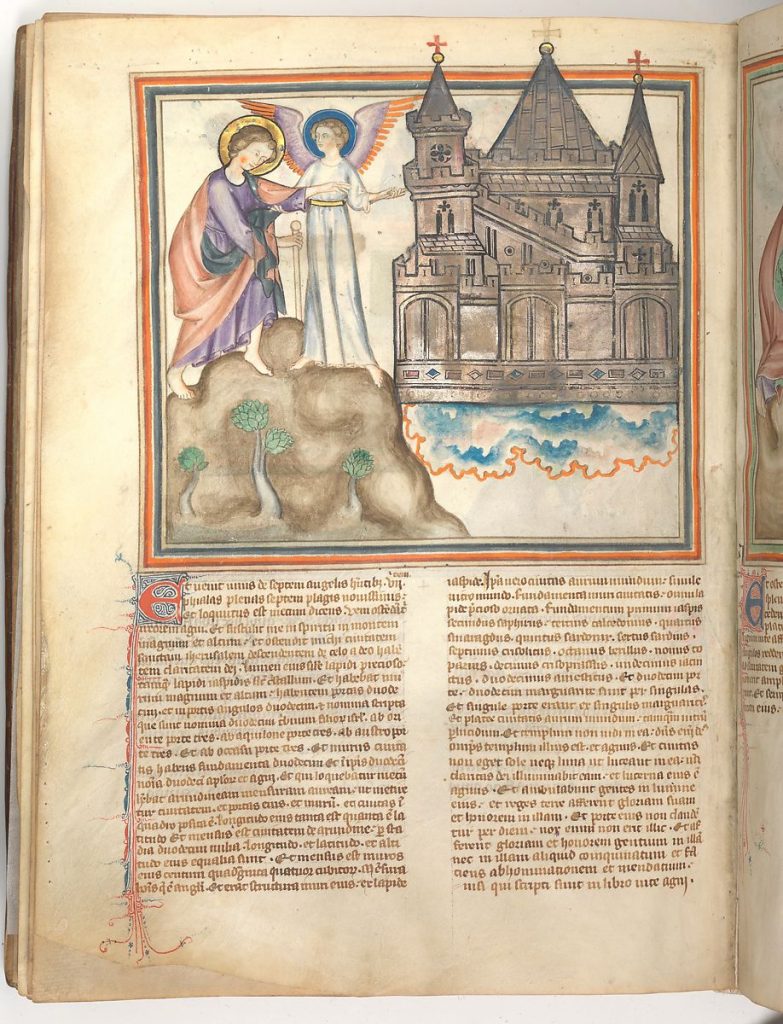 Et venit unus de septem angelis hñtibꝫ
phialas plenas septem plagis novissimis·
Et locutus est mecum dicens· Veni ostendā t
uxorem agni· Et sustulit me in spiritu in montem
magnum et altum· et ostendit michi civitatem
sanctam iherusalem descendentem de celo a deo habē
tem claritatem dei· lumen eius simile lapidi precioso
tamqᷓ lapidi iaspidis sicut cristallum· Et habebat mu
rum magnum et altum· habentem portas duode
cim· et in portis angulos duodecim· et nomina scripta
que sunt nomina duodecim tribuum filiorum isrl· ab ori
ente porte tres· ab aquilone porte tres· ab austro por
te tres· Et ab occasu porte tres· Et murus civita
tis habens fundamenta duodecim· Et in ipsis duodecī
nomina duodecim aplorum et agni· Et qui loquebatur mecū
habebat arundineam mensuram auream· ut metire
tur civitatem· et portas eius· et murū· et civitas ī
quadro posita ē· longitudo eius tanta est quanta ē la
titudo Et mensus est civitatem de arundine· per sta
dia duodecim milia· longitudo· et latitudo· et alti
tudo eius equalia sunt· Et mensus est muros
eius centum quadraginta quatuor cubitorum· mensura
hominis que ē angli· Et erat structura muri eius· ex lapide
iaspide· Ipsa vero civitas aurum mundum· simile
vitro mundo· fundamenta muri civitatis· omni la
pide precioso ornata· fundamentum primum iaspis
secundus saphirus· tercius calcedonius· quartus
smaragdus· quintus sardonix· sextus sardius·
septimus crisolitus· octavus berillus· nonus to
pazius· decimus crisoprassus· undecimus iacin
ctus· duodecimus amestitus· Et duodecim por
te· duodecim margarite sunt per singulas·
Et singule porte erant ex singulis margaritis·
Et platee civitatis aurum mundum· tamqm vitrū
plucidum· Et templum non vidi in ea· dñs enim ds
omnps templum illius est· et agnus· Et civitas
non eget sole neqꝫ luna ut luceant in ea· nā
claritas dei illuminabit eam· et lucerna eius ē
agnus· Et ambulabunt gentes in lumine
eius· et reges terre afferent gloriam suam
et honorem in illam· Et porte eius non claudē
tur per diem· nox enim non erit illic· Et af
ferent gloriam et honorem gentium in illā
nec in illam aliquid coinquinatum et fa
ciens abhominationem et mendatium·
nisi qui scripti sunt in libro vite agni·